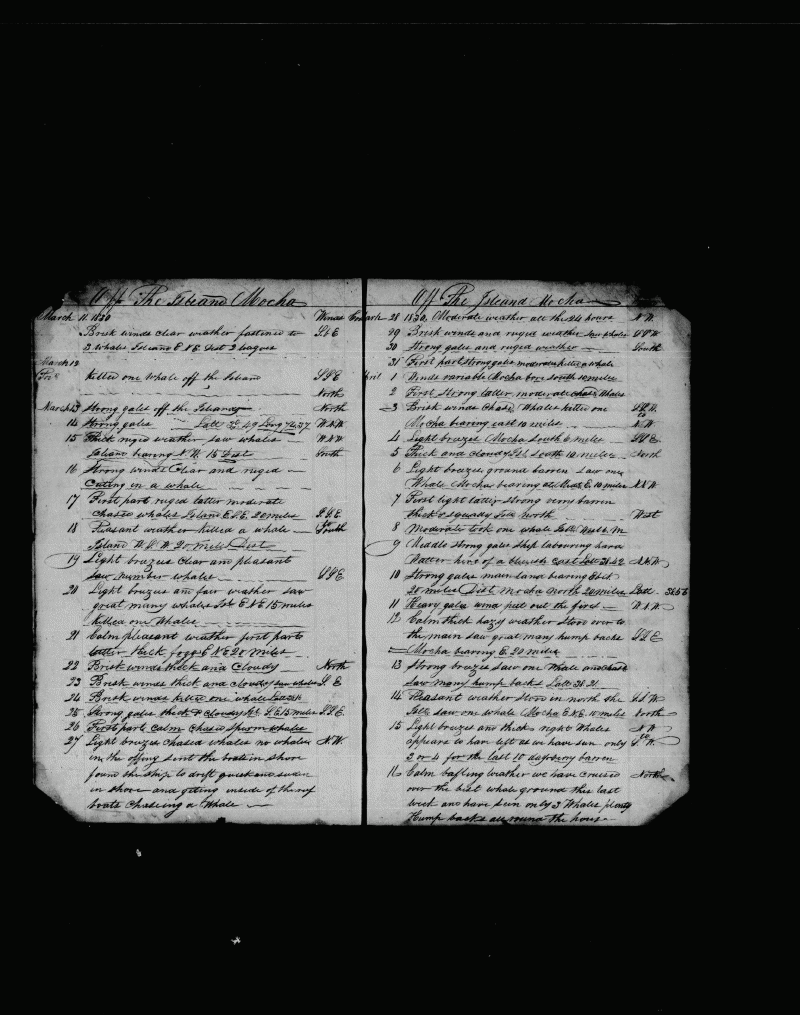 Off The Island Mocha
March 11 1830 Winds from
Brisk winds clear weather fastened to S&E
3 whales Island E N E Dist 3 Leagues
March 12
killed one whale off the Island SSE
North
March 13 Strong gales off the Island North
14 Strong gales Latt 38°49 Long 74.37 W.N.W
15 Thick ruged weather saw whales W.N.W
Island bearing N.W. 15 Dist South
16 Strong winds Clear and ruged
Cuting in a whale
17 First part ruged latter moderate
chased whales Island E.N.E. 20 miles S.S.E
18 Pleasant weather killed a whale South
Island W.S.W 20 miles Dist
19 Light brezes clear and pleasant
saw number whales SSE
20 Light brezes and fair weather saw
great many whales Isl E N E 15 miles
killed one Whale
21 Calm pleasant weather first part
latter thick fogg E N E 20 miles
22 Brisk winds thick and Cloudy North
23 Brisk winds thick and cloudy saw whales S. E
24 Brisk winds killed one whale
25 Strong gales thick & cloudy Isl S.E 15 miles S.S.E.
26 First part Calm Chased Sperm whales
27 Light brezes chased whales no whales N.W.
in the offing sent the boats in shore
found the ship to drift quick and
in shore and geting inside of the reef
boats Chaseing a Whale
Off The Island Mocha
March 28 1830. Moderate weather all the 24 hours N.W.
29 Brisk winds and ruged weather saw whales SSW
30 Strong gales and ruged weather South
31 First part strong gales moderate killed a whale
April 1 Winds variable Mocha bore South 10 miles
2 First Strong latter moderate chased Whales
3 Brisk winds Chased Whales killed one SS.W.
to
Mocha bearing east 10 miles N.W.
4 Light brezes Mocha South 6 miles SS E
5 Thick and cloudy Isl South 10 miles North
6 Light brezes ground barren saw one
Whale Mocha bearing E. 10 miles N.N.W
7 First light latter strong verry barren
thick & squally Isle North West
8 Moderate took one whale Isle West 6 M
9 Meddle strong gales ship labouring hard
Latt 38.42 N.N.W
10 Strong gales main land bearing East
20 miles Dist Mocha North 20 miles Latt 38.56
11 Heavy gales wind first out the first W.N.W
12 Calm thick hazy weather stood over to
the main saw great many hump backs S.S.E
Mocha bearing E. 20 miles
13 Strong brezes saw one Whale and
saw many hump backs Latt 38.21
14 Pleasant weather stood in north the S.S.W
Isle saw one whale Mocha E.N.E. 10 miles North
15 Light brezes and thick right Whales N.W
to
appears to have left as we have seen only S.W.
2 or 3 for the last 10 days very barren
16 Calm bafling weather we have cruised North
over the best whale ground this last
week and have seen only 3 Whales plenty
Hump backs all round the